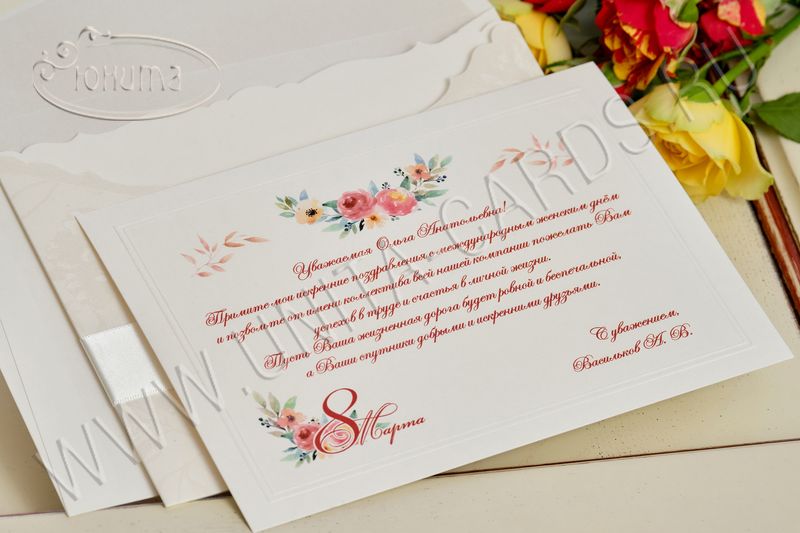 Юнита
Уважаемая Ольга Анатольевна!
Примите мои искренние поздравления с международным женским днём
и позвольте от имени коллектива всей нашей компании пожелать Вам
успехов в труде и счастья в личной жизни.
Пусть Ваша жизненная дорога будет ровной и беспечальной,
а Ваши спутники добрыми и искренними друзьями.
С уважением,
Васильков А. В.
8 Марта
WWW.UNITA-CARDS.RU